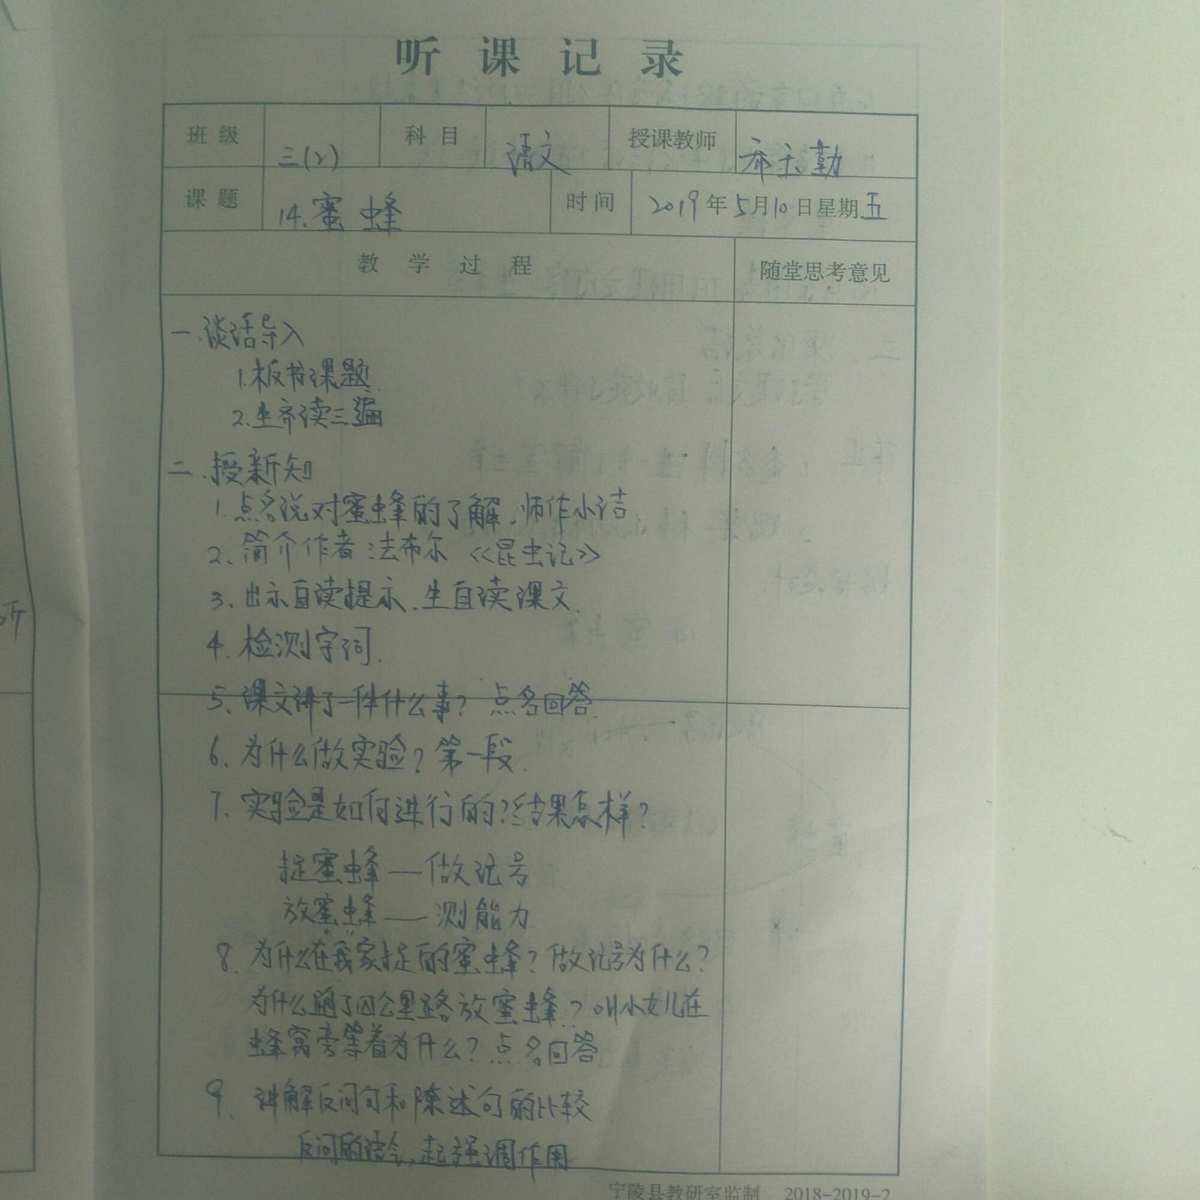 听课记录
班级 三(2) 科目 语文 授课教师 乔 勤
课题 14.蜜蜂 时间 2019年5月10日星期五
教学过程 随堂思考意见
一.谈话导入
1.板书课题.
2.生齐读三遍
二.授新知
1.点名说对蜜蜂的了解.师作小结
2.简介作者法布尔《昆虫记》
3.出示自读提示.生自读课文.
4.检测字词.
5.课文讲了一件什么事?点名回答.
6.为什么做实验?第一段.
7.实验是如何进行的?结果怎样?
捉蜜蜂—做记号
放蜜蜂—测能力
8.为什么在我家捉的蜜蜂?做记号为什么?
为什么 了四公里路放蜜蜂?叫小女儿在
蜂窝旁等着为什么?点名回答
9.讲解反问句和陈述句的比较
反问的语气,起强调作用
宁陵县教研室监制 2018-2019-2